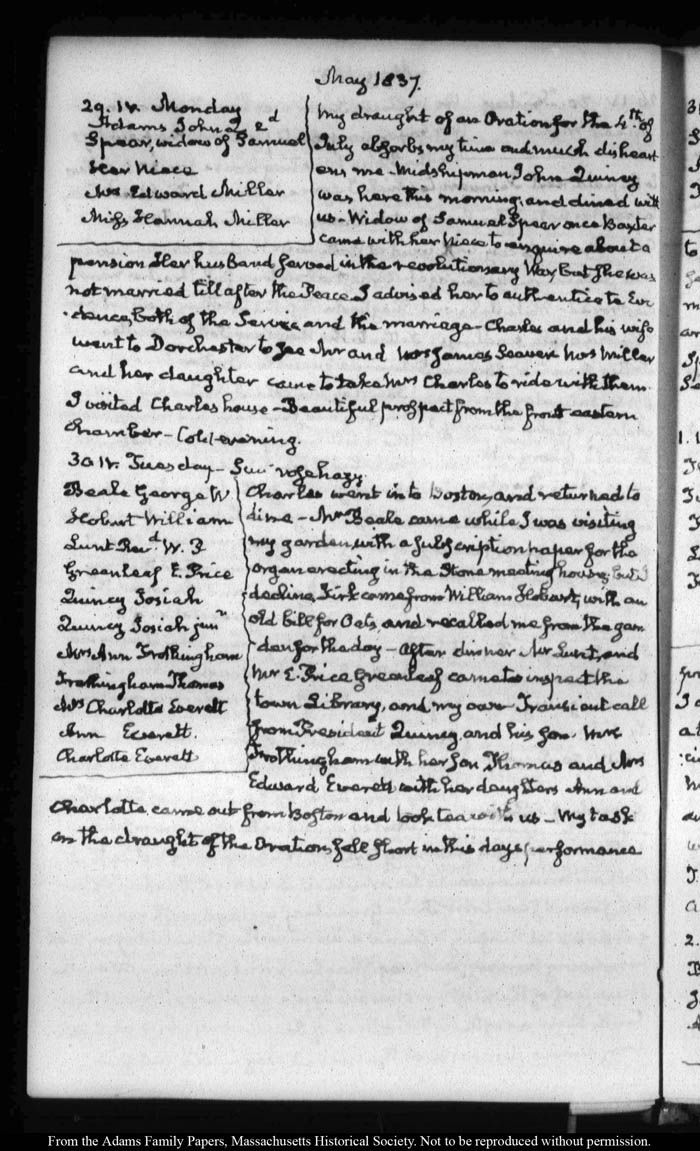 May 1837.
29. IV. Monday
Adams John Q. 2d
Spear, widow of Samuel
Her Niece
Mrs Edward Miller
Miss Hannah Miller
My draught of an Oration for the 4th. of
July absorbs my time and much disheart-
ens me. Midshipman John Quincy
was here this morning, and dined with
us. Widow of Samuel Spear once Baxter
came with her Niece to enquire about a
pension Her husband served in the revolutionary War, but she was
not married till after the Peace. I advised her to authenticate Evi-
dence, both of the Service and the marriage. Charles and his wife
went to Dorchester to see Mr and Mrs James Seaver. Mrs Miller
and her daughter came to take Mrs Charles to ride with them.
I visited Charles house - Beautiful prospect from the front eastern
Chamber - Cold evening.
30. IV. Tuesday - Sun rose hazy.
Beale George W
Hobart William
Lunt Revd. W. P
Greenleaf E. Price
Quincy Josiah
Quincy Josiah junr
Mrs Ann Frothingham
Frothingham Thomas
Mrs Charlotte Everett
Ann Everett.
Charlotte Everett
Charles went into Boston, and returned to
dine - Mr Beale came while I was visiting
my garden, with a subscription paper for the
organ erecting in the Stone meeting house, but I
decline. Kirk came from William Hobart, with an
old bill for Oats, and recalled me from the gar-
den for the day - After dinner Mr Lunt, and
Mr E. Price Greenleaf came to inspect the
town Library, and my own Transient call
from President Quincy, and his son. Mrs
Frothingham with her son Thomas and Mrs
Edward Everett with her daughters Ann and
Charlotte came out from Boston and took tea with us - My task
on the draught of the Oration, fell short in this days performance
From the Adams Family Papers, Massachusetts Historical Society. Not to be reproduced without permission.